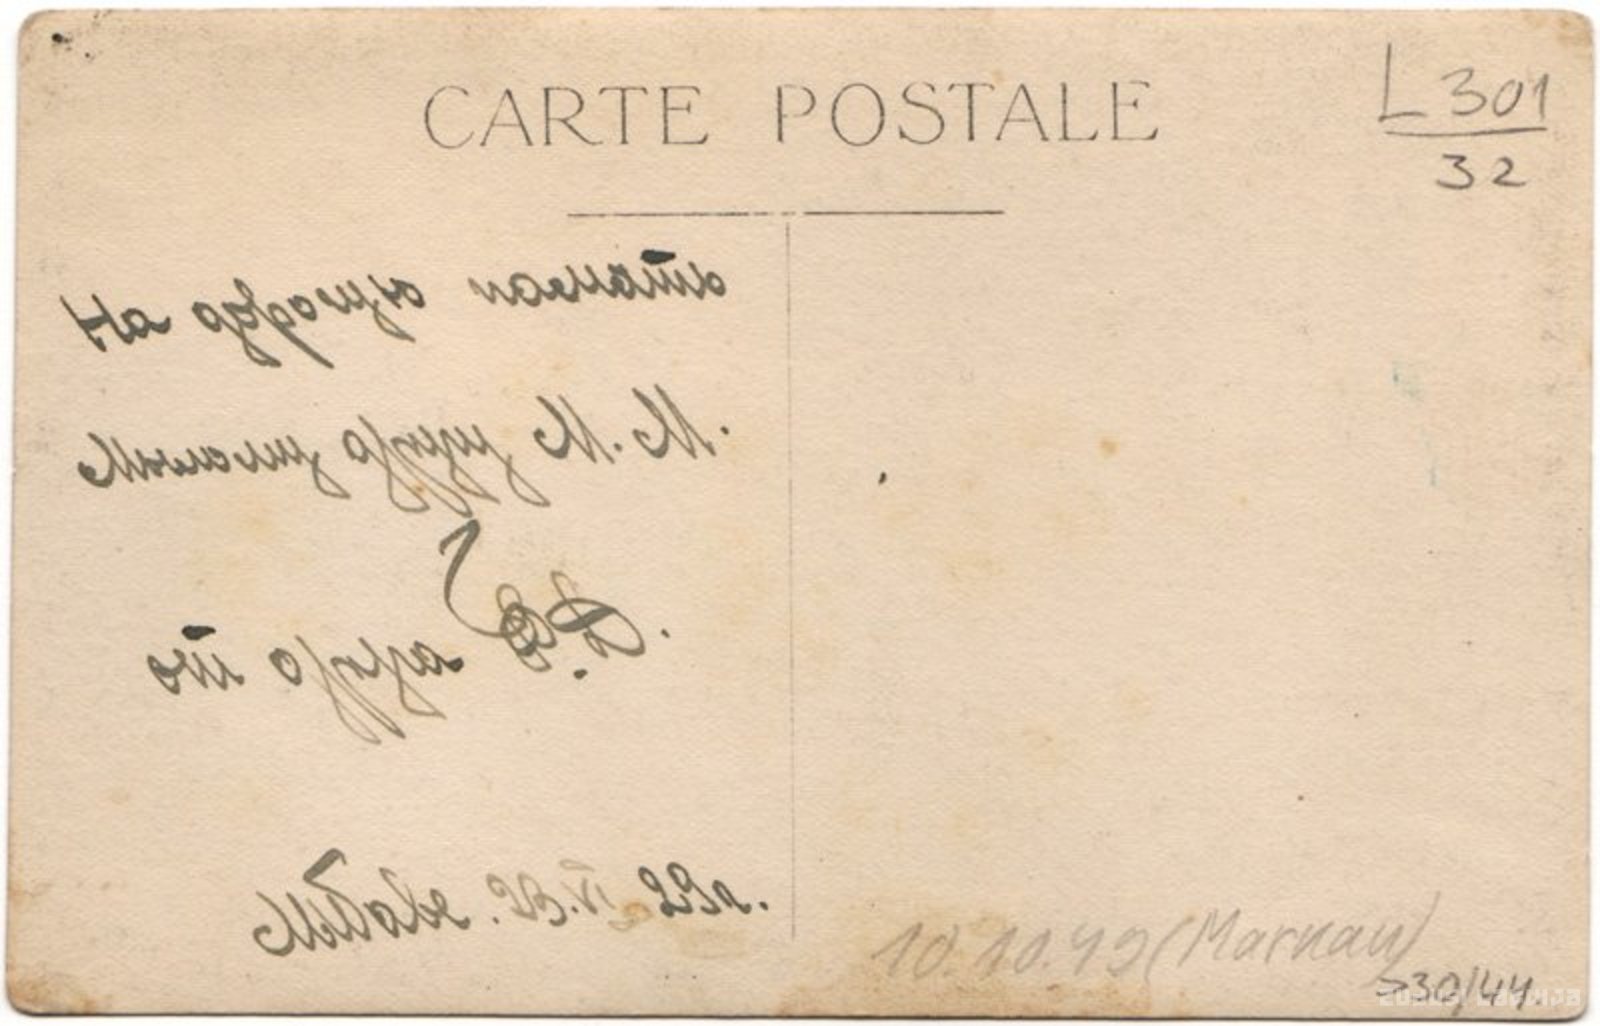 CARTE POSTALE
L 301
32
На добрую память
Милому другу М. М.
от друга
23.VI 29г.
10.10.49 (Marnau)
730/44.